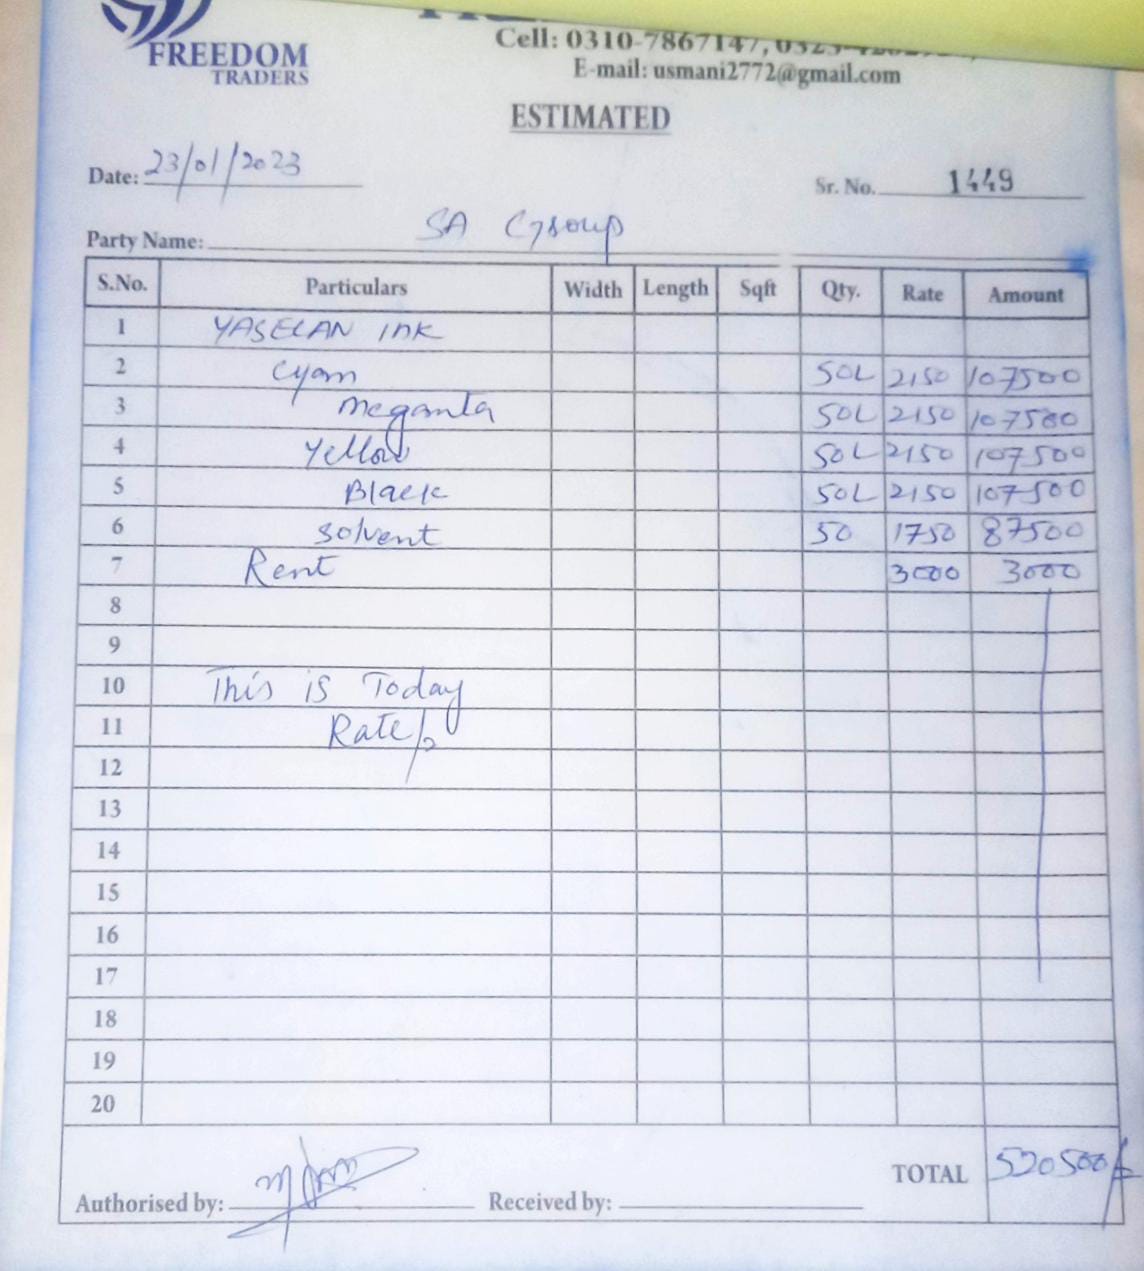 FREEDOM
TRADERS
Cell: 0310-7867147, 0323-
E-mail: usmani2772@gmail.com
ESTIMATED
Date: 23/01/2023
Sr. No. 1449
Party Name: SA Group
S.No. Particulars Width Length Sqft Qty. Rate Amount
1 YASELAN INK
2 Cyan 50L 2150 107500
3 meganta 50L 2150 107500
4 Yellow 50L 2150 107500
5 Black 50L 2150 107500
6 Solvent 50 1750 87500
7 Rent 3000 3000
8
9
10 This is Today
11 Rate/
12
13
14
15
16
17
18
19
20
TOTAL 520500/=
Authorised by: Received by: